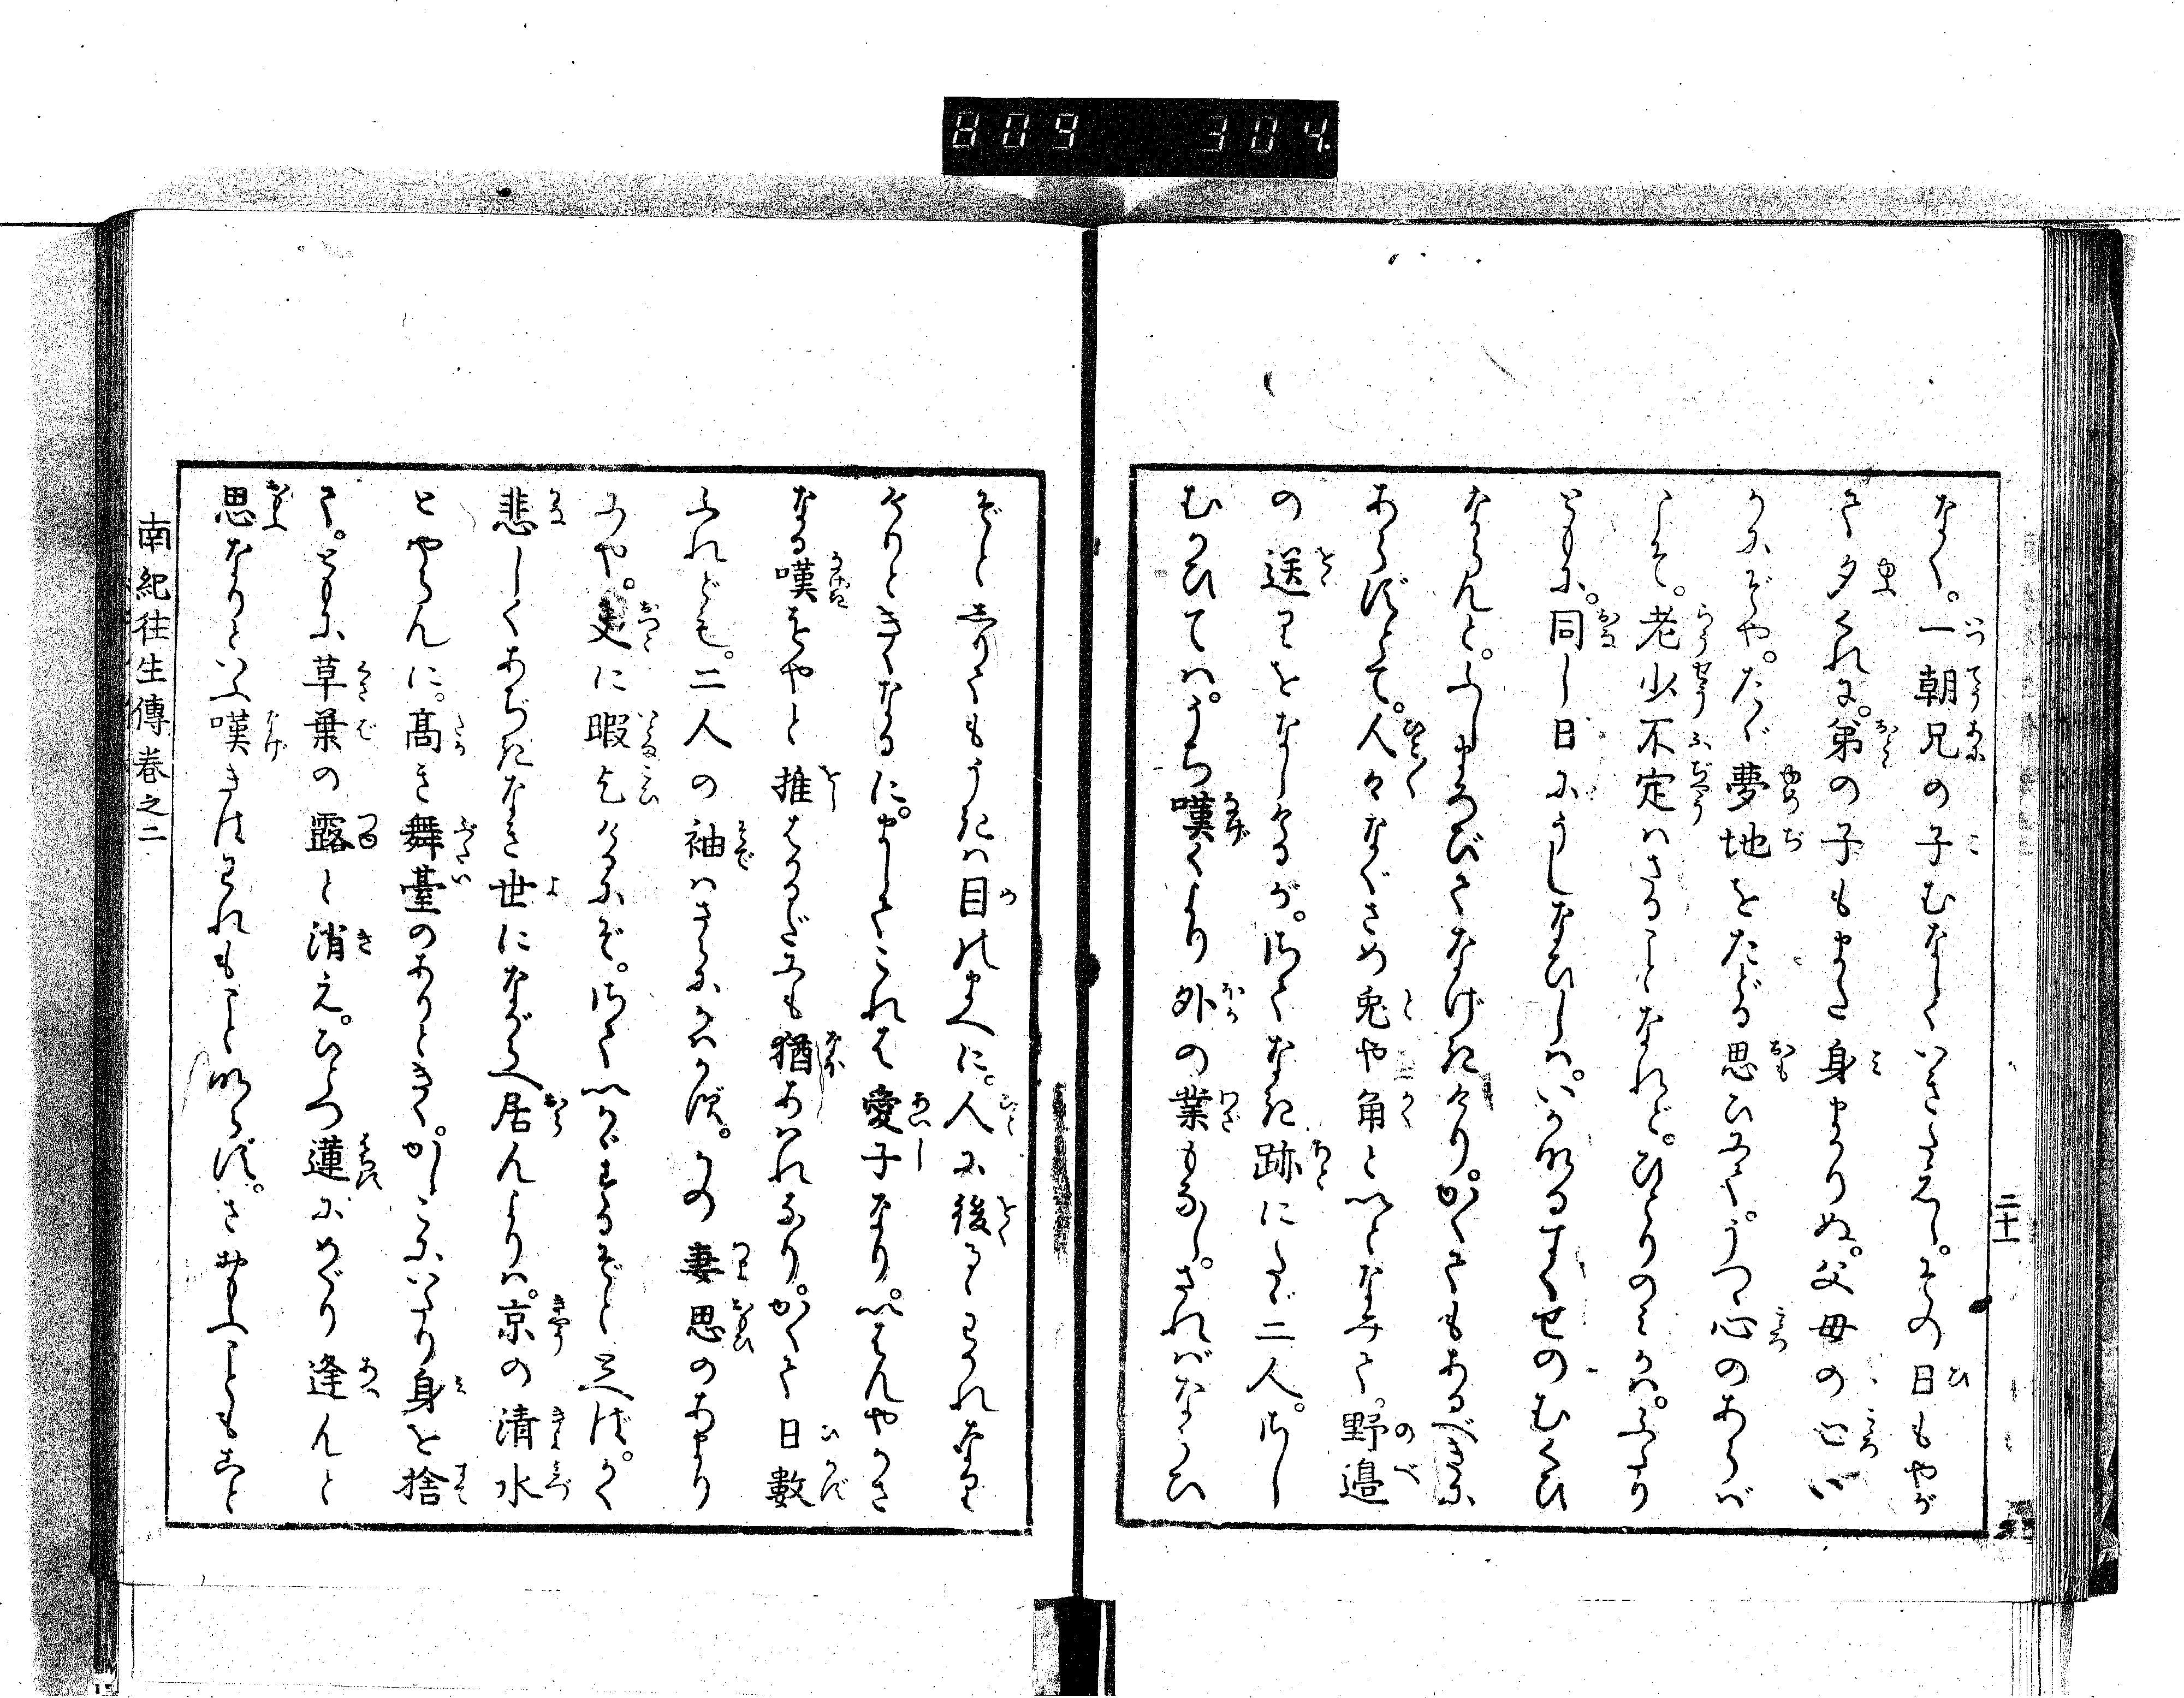 809 304
二十一
なく。一朝兄の子むなしくいきたえし。その日もやが
て夕くれに。弟の子もまた身まかりぬ。父母の心い
かにぞや。たゞ夢地をたどる思ひにて。うつ心のあらば
こそ。老少不定はさることなれど。ひとりのみかは。ふたり
ともに。同し日にうしなひしは。いかなるすくせのむくひ
ならんと。ふしまろびてなげきけり。かくてもあるべきに
あらずとて。人々なぐさめ兎や角といとなみて。野邉
の送りをなしけるが。さてなき跡にたゞ二人。さし
むかひては。うち嘆くより外の業もなし。さればならひ
ぞとしりてもうきは目のまへに。人に後るゝわかれなり
けりときくなるに。ましてこれは愛子なり。いはんやかさ
なる嘆をやと推はかるだにも猶あはれなり。かくて日數
ふれども。二人の袖はさらにかはかず。かの妻思のあまり
にや。夫に暇乞けるにぞ。さていかゞするぞと問へば。かく
悲しくあぢきなき世にながらへ居んよりは。京の清水
とやらんに。高き舞臺のありときく。かしこにいたり身を捨
て。ともに草葉の露と消え。ひとつ蓮にめぐり逢んと
思なりといふ嘆きはわれもことならず。さおもふこともこと
南紀往生傳巻之二